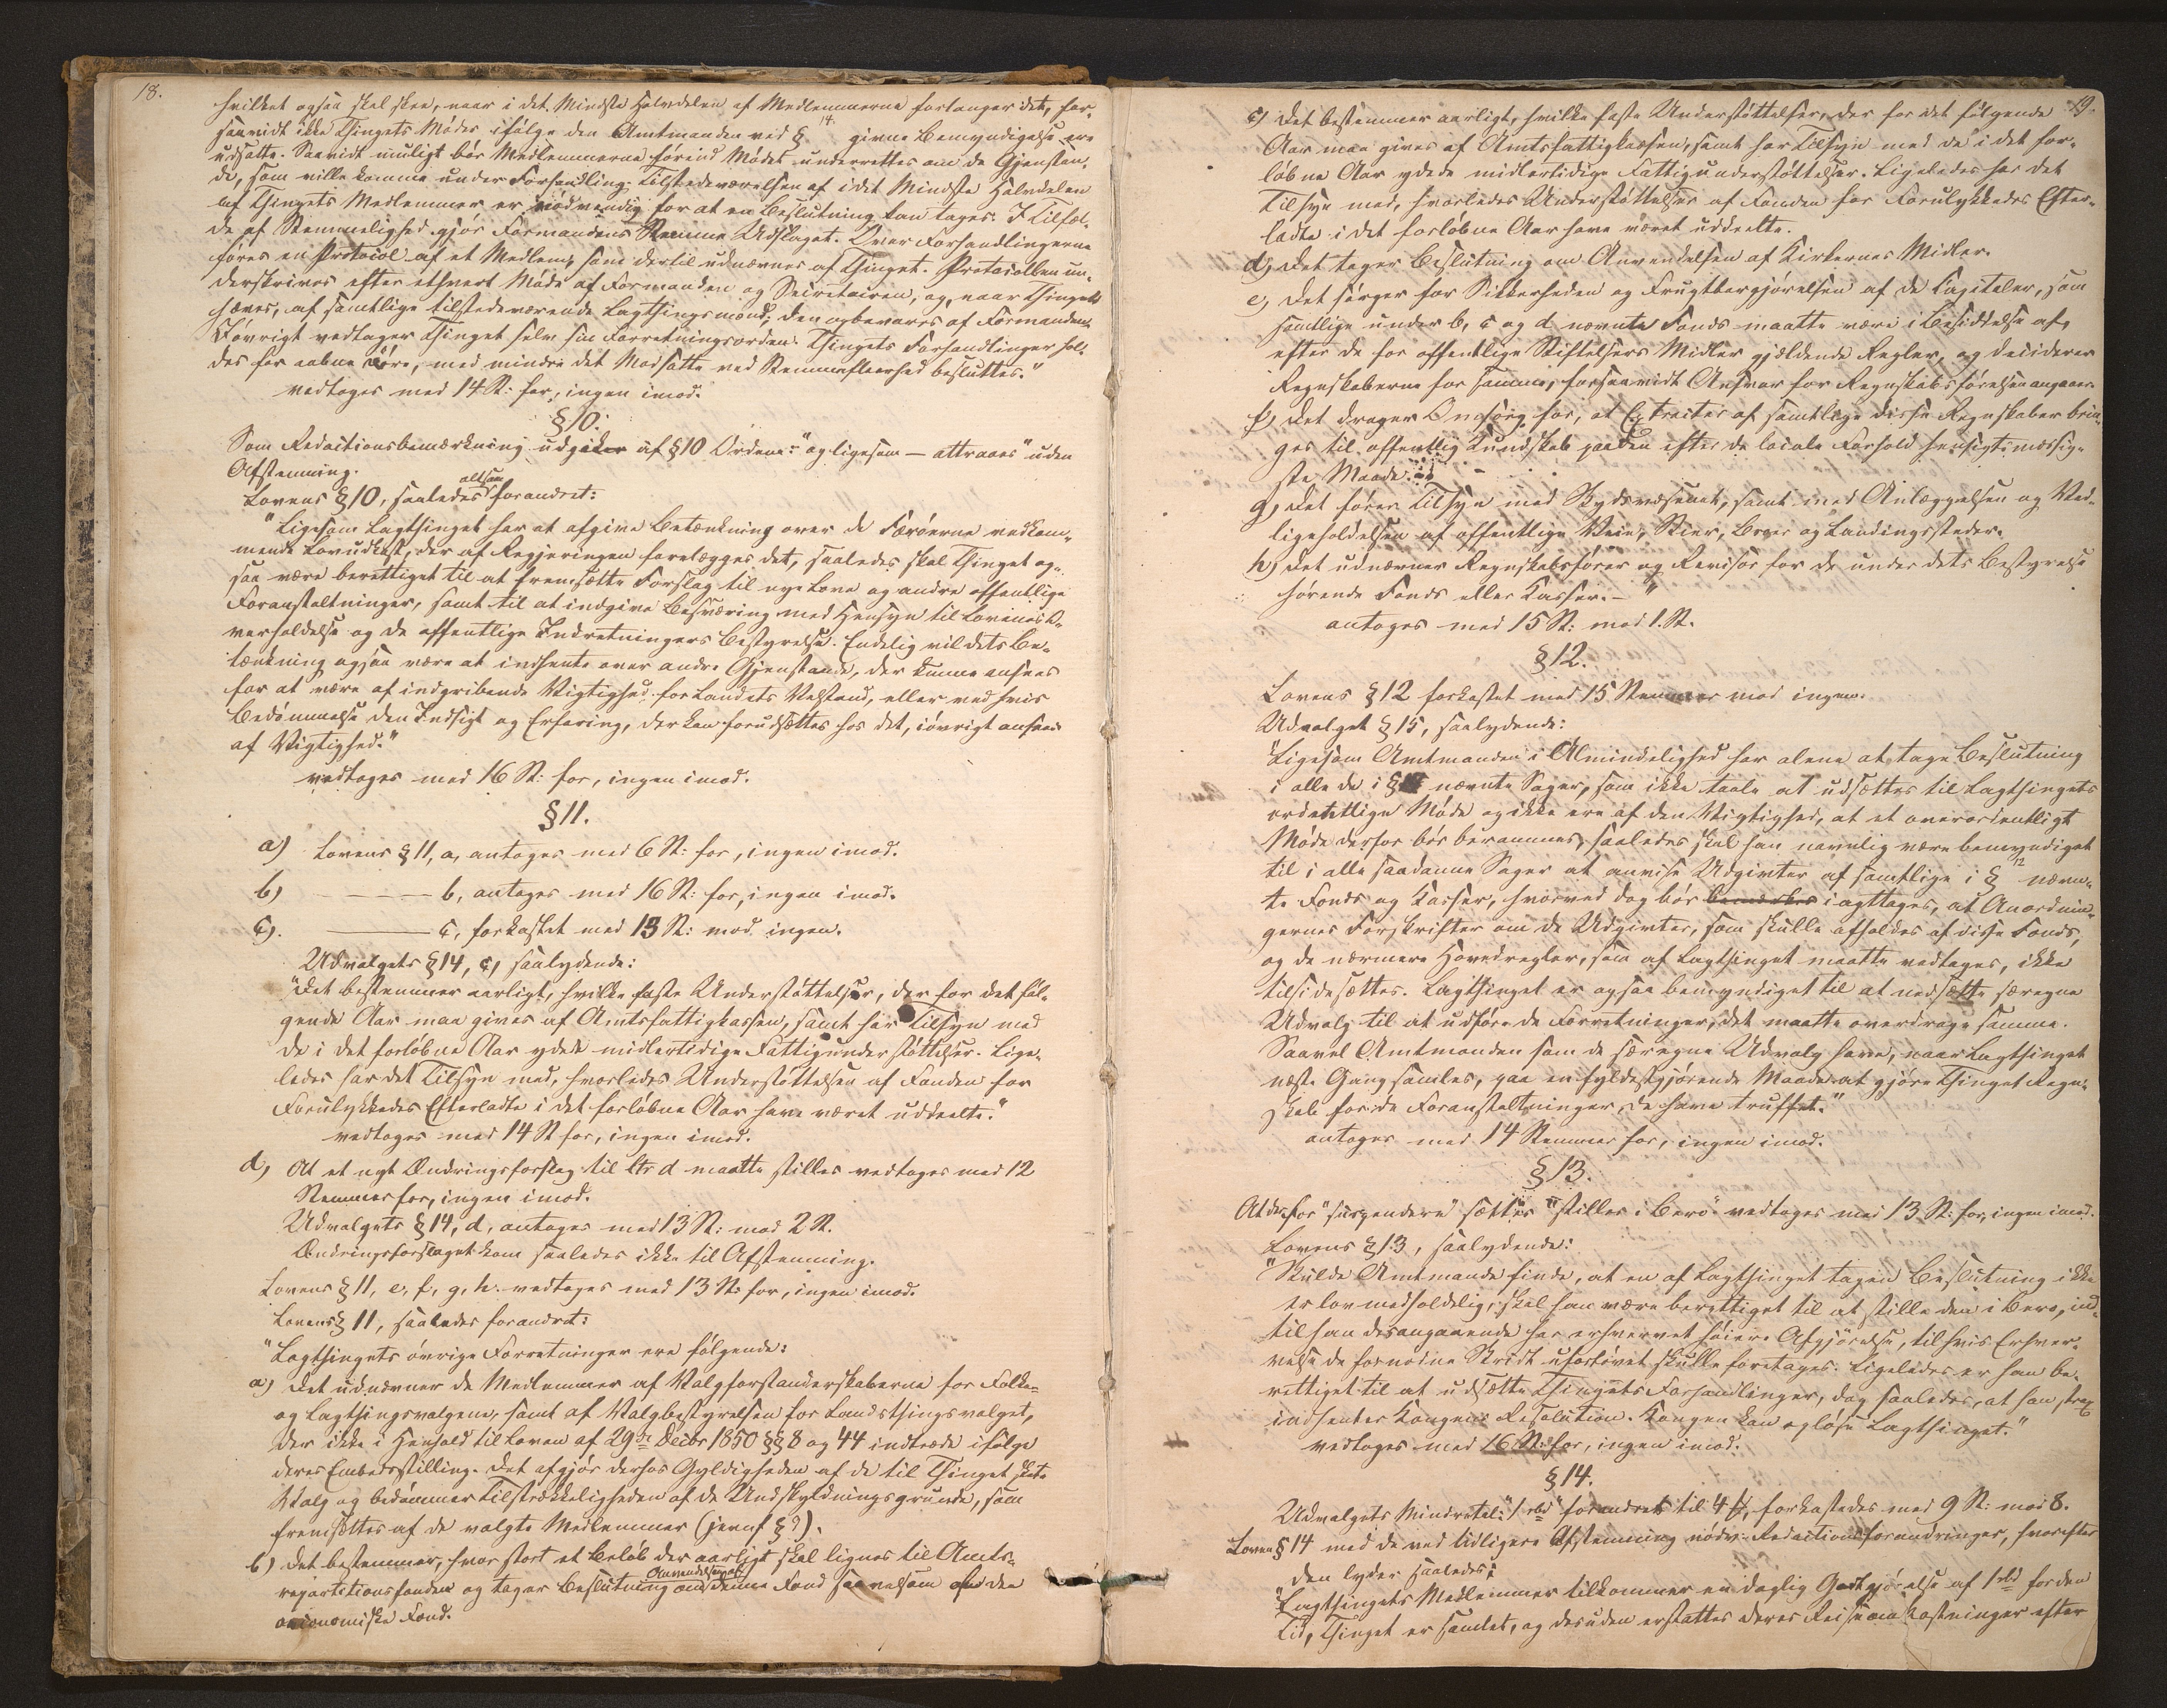 18.
hvilket ogsaa skal skee, naar i det Mindste Halvdelen af Medlemmerne forlanger det, for-
saavidt ikke Thingets Møder ifølge den Amtmanden ved § 14 givne Bemyndigelse ere
udsatte. Saavidt muligt bør Medlemmerne forind Mødet underrettes om de Gjenstan-
de, som ville komme under Forhandling; Tilstedeværelsen af i det Mindste Halvdelen
af Thingets Medlemmer er nødvendig for at en Beslutning kan tages. I Tilfæl-
de af Stemmelighed gjør Formandens Stemme Udslaget. Over Forhandlingerne
føres en Protocol af et Medlem, som dertil udnævnes af Thinget. Protocollen un-
derskrives efter ethvert Møde af Formanden og Secretairen, og, naar Thinget
hæves, af samtlige tilstedeværende Lagthingsmænd; den opbevares af Formanden.
Iøvrigt vedtager Thinget selv sin Forretningsorden. Thingets Forhandlinger hol-
des for aabne Døre, med mindre det Modsatte ved Stemmefleerhed besluttes."
vedtoges med 14 St: for, ingen imod.
§ 10.
Som Redactionsbemærkning udgik af § 10 Ordene: "og ligesom — attraaes" uden
Afstemning.
Lovens § 10, saaledes altsaa forandret:
"Ligesom Lagthinget har at afgive Betænkning over de Færøerne vedkom-
mende Lovudkast, der af Regjeringen forelægges det, saaledes skal Thinget og-
saa være berettiget til at fremsætte Forslag til nye Love og andre offentlige
Foranstaltninger, samt til at indgive Besværing med Hensyn til Lovenes O-
verholdelse og de offentlige Indretningers Bestyrelse. Endelig vil dets Be-
tænkning ogsaa være at indhente over andre Gjenstande, der kunne ansees
for at være af indgribende Vigtighed for Landets Velstand, eller ved hvis
Bedømmelse den Indsigt og Erfaring, der kan forudsættes hos det, iøvrigt ansees
af Vigtighed."
vedtoges med 16 St: for, ingen imod.
§ 11.
a) Lovens § 11, a, antoges med 6 St: for, ingen imod.
b) ——— b, antoges med 16 St: for, ingen imod.
c). ——— c, forkastet med 13 St: mod ingen.
Udvalgets § 14, c, saalydende:
"Det bestemmer aarligt, hvilke faste Understøttelser, der for det føl-
gende Aar maa gives af Amtsfattigkassen, samt har Tilsyn med
de i det forløbne Aar ydede midlertidige Fattigunderstøttelser. Lige-
ledes har det Tilsyn med, hvorledes Understøttelsen af Fonden for
Forulykkedes Efterladte i det forløbne Aar have været uddeelte."
vedtoges med 14 St for, ingen imod.
d, At et nyt Ændringsforslag til ltr d maatte stilles vedtoges med 12
Stemmer for, ingen imod.
Udvalgets § 14, d, antoges med 13 St: mod 2 St.
Ændringsforslaget kom saaledes ikke til Afstemning.
Lovens § 11, e, f, g, h. vedtoges med 13 St: for, ingen imod.
Lovens § 11, saaledes forandret:
"Lagthingets øvrige Forretninger ere følgende:
a) Det udnævner de Medlemmer af Valgforstanderskaberne for Folke-
og Lagthingsvalgene, samt af Valgbestyrelsen for Landsthingsvalget,
der ikke i Henhold til Loven af 29de Decbr 1850 §§ 8 og 44 indtræde ifølge
deres Embedsstilling. Det afgjør derhos Gyldigheden af de til Thinget skete
Valg og bedømmer Tilstrækkeligheden af de Undskyldningsgrunde, som
fremsættes af de valgte Medlemmer (jevnf § 9).
b) Det bestemmer, hvor stort et Beløb der aarligt skal lignes til Amts-
repartitionsfonden og tager Beslutning om Anvendelsen af denne Fond saavelsom af den
oeconomiske Fond.
19.
c) Det bestemmer aarligt, hvilke faste Understøttelser, der for det følgende
Aar maa gives af Amtsfattigkassen, samt har Tilsyn med de i det for-
løbne Aar ydede midlertidige Fattigunderstøttelser. Ligeledes har det
Tilsyn med, hvorledes Understøttelser af Fonden for Forulykkedes Efter-
ladte i det forløbne Aar have været uddeelte.
d, Det tager Beslutning om Anvendelsen af Kirkernes Midler.
e, Det sørger for Sikkerheden og Frugtbargjørelsen af de Capitaler, som
samtlige under b, c og d nævnte Fonds maatte være i Besiddelse af,
efter de for offentlige Stiftelsers Midler gjældende Regler, og deciderer
Regnskaberne for samme, forsaavidt Ansvar for Regnskabsførelsen angaaer.
f) Det drager Omsorg for, at Extracter af samtlige disse Regnskaber brin-
ges til offentlig Kundskab paa den efter de locale Forhold hensigtsmæssig-
ste Maade.
g) Det fører Tilsyn med Skydsvæsenet, samt med Anlæggelsen og Ved-
ligeholdelsen af offentlige Veie, Stier, Broer og Landingssteder.
h) Det udnævner Regnskabsfører og Revisor for de under dets Bestyrelse
hørende Fonds eller Kasser. —"
antoges med 15 St: mod 1. St.
§ 12.
Lovens § 12 forkastet med 15 Stemmer mod ingen.
Udvalget § 15, saalydende:
"Ligesom Amtmanden i Almindelighed har alene at tage Beslutning
i alle de i § nævnte Sager, som ikke taale at udsættes til Lagthingets
ordentlige Møde og ikke ere af den Vigtighed, at et overordentligt
Møde derfor bør berammes, saaledes skal han navnlig være bemyndiget
til i alle saadanne Sager at anvise Udgifter af samtlige i § 12 nævn-
te Fonds og Kasser, hvorved dog bør iagttages, at Anordnin-
gernes Forskrifter om de Udgivter, som skulle afholdes af disse Fonds,
og de nærmere Hovedregler, som af Lagthinget maatte vedtages, ikke
tilsidesættes. Lagthinget er ogsaa bemyndiget til at nedsætte særegne
Udvalg til at udføre de Forretninger, det maatte overdrage samme.
Saavel Amtmanden som de særegne Udvalg have, naar Lagthinget
næste Gang samles, paa en fyldestgjørende Maade at gjøre Thinget Regn-
skab for de Foranstaltninger, de have truffet."
antoges med 14 Stemmer for, ingen imod.
§ 13.
At der for "suspendere" sættes "stilles i Bero" vedtoges med 13 St: for, ingen imod.
Lovens § 13, saalydende:
"Skulde Amtmanden finde, at en af Lagthinget tagen Beslutning ikke
er lovmedholdelig, skal han være berettiget til at stille den i Bero, ind-
til han desangaaende har erhvervet høiere Afgjørelse, til hvis Erhver-
velse de fornødne Skridt ufortøvet skulle foretages. Ligeledes er han be-
rettiget til at udsætte Thingets Forhandlinger, dog saaledes, at han strax
indhenter Kongens Resolution. Kongen kan opløse Lagthinget."
vedtoges med 16 St: for, ingen imod.
§ 14.
Udvalgets Mindretal: "1 rbd" forandret til 4 , forkastedes med 9 St. mod 8.
Loven § 14 med de ved tidligere Afstemning nødv. Redactionsforandringer, hvorefter
den lyder saaledes:
"Lagthingets Medlemmer tilkommer en daglig Godtgjørelse af 1 rbd for den
Tid, Thinget er samlet, og desuden erstattes deres Reiseomkostninger efter